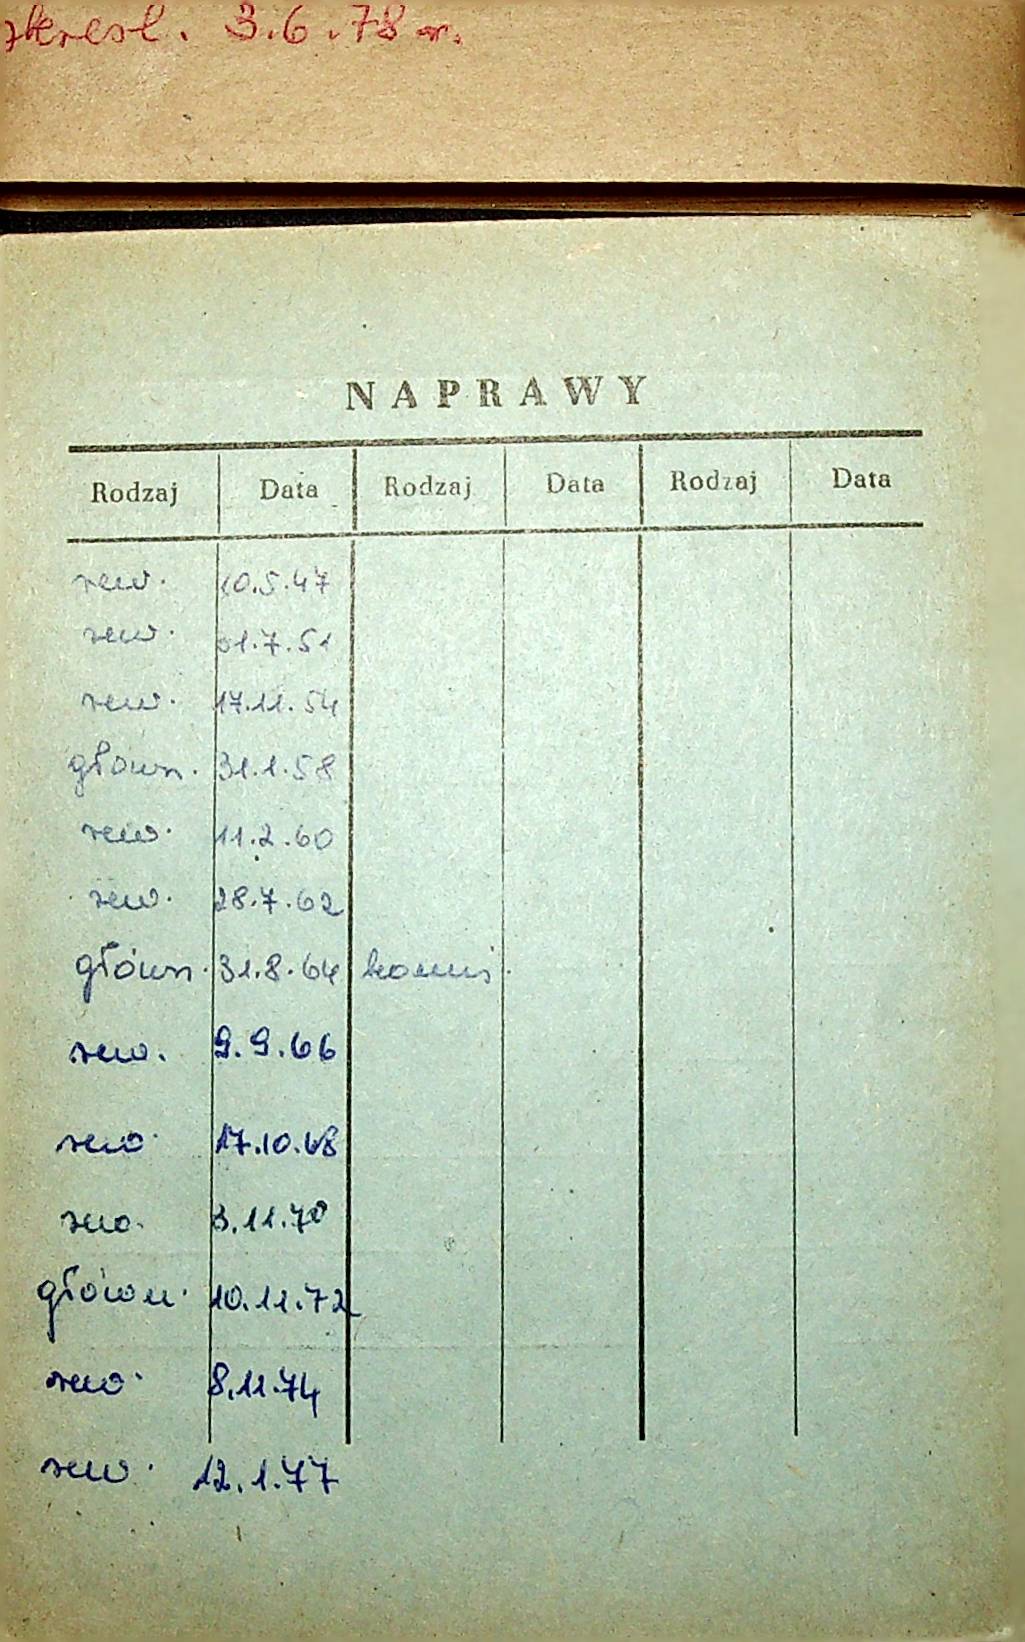 skresl. 3.6.78 r.
NAPRAWY
Rodzaj Data Rodzaj Data Rodzaj Data
rew. 10.5.47
rew. 01.7.51
rew. 17.11.54
główn. 31.1.58
rew. 11.2.60
rew. 28.7.62
główn. 31.8.64
rew. 9.9.66
rew. 17.10.68
rew. 3.11.70
główn. 10.11.72
rew. 8.11.74
rew. 12.1.77